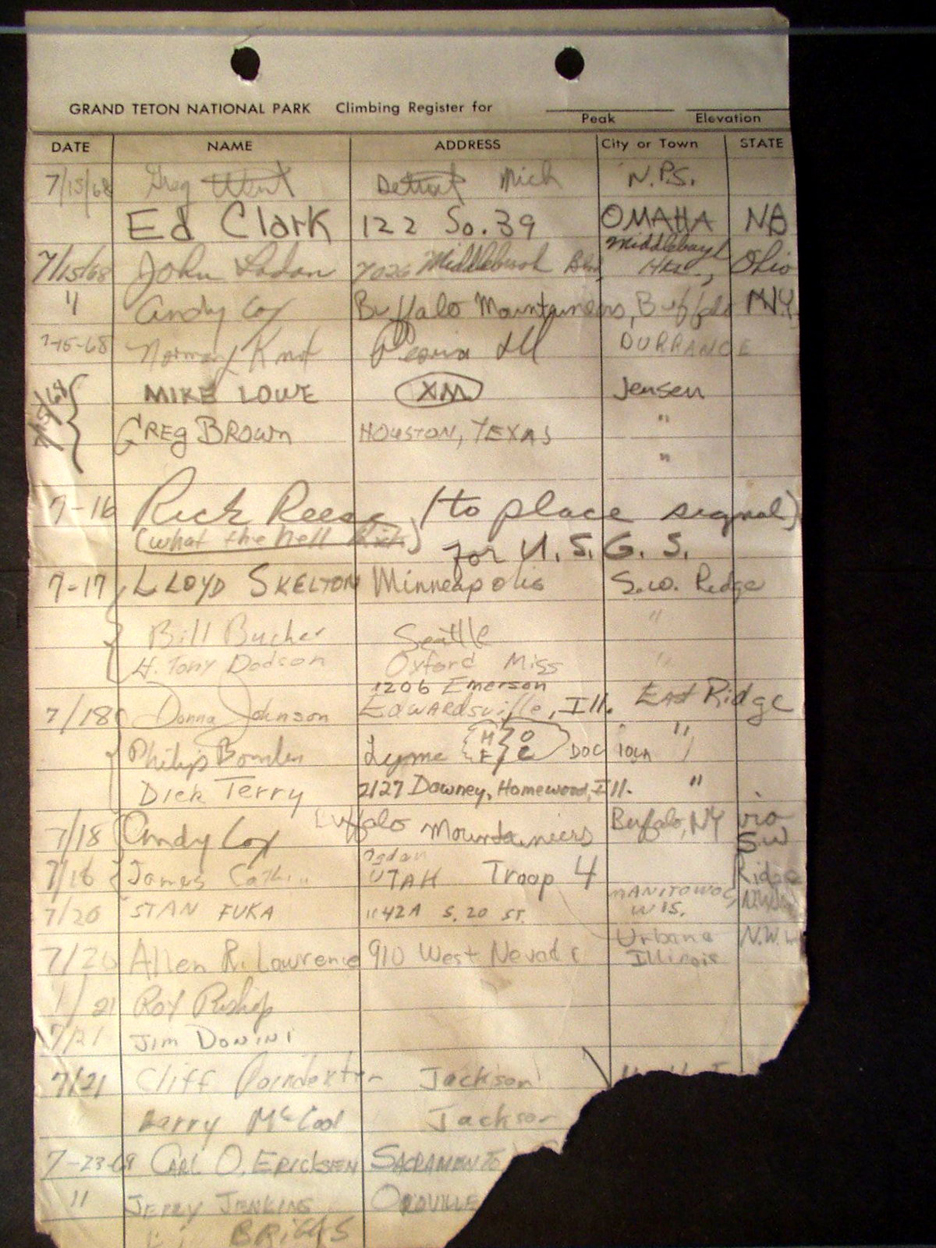 GRAND TETON NATIONAL PARK Climbing Register for
Peak Elevation
DATE NAME ADDRESS City or Town STATE
7/15/68 Greg Detroit Mich N.P.S.
Ed Clark 122 So. 39 OMAHA NB
7/15/68 John 7026 Middlebush Hts., Ohio
" Andy Cox Buffalo Mountaineers, Buffalo N.Y.
7-15-68 Norman Peoria Ill DURRANCE
MIKE LOWE XM Jensen
GREG BROWN HOUSTON, TEXAS "
"
7-16 Rick Reese (to place signal)
(what the hell Rick) for U.S.G.S.
7-17 LLOYD SKELTON Minneapolis S.W. Ridge
Bill Bucher Seattle "
H. Tony Dodson Oxford Miss "
1206 Emerson
7/18 Donna Johnson EDWARDSVILLE, Ill. East Ridge
Philip Lyme DOC "
Dick Terry 2127 Downey, Homewood, Ill. "
7/18 Andy Cox Buffalo Mountaineers Buffalo, NY via S.W Ridge
7/18 James Ogden UTAH Troop 4
7/20 STAN FUKA 1142A S. 20 ST. MANITOWOC, WIS.
7/20 Allen R. Lawrence 910 West Nevada Urbana Illinois
21 Roy
7/21 JIM DONINI
7/21 Cliff Poindexter Jackson
McCool Jackson
7-23-68 CARL O. ERICKSEN SACRAMENTO
" JERRY JENKINS OROVILLE
BRIGGS